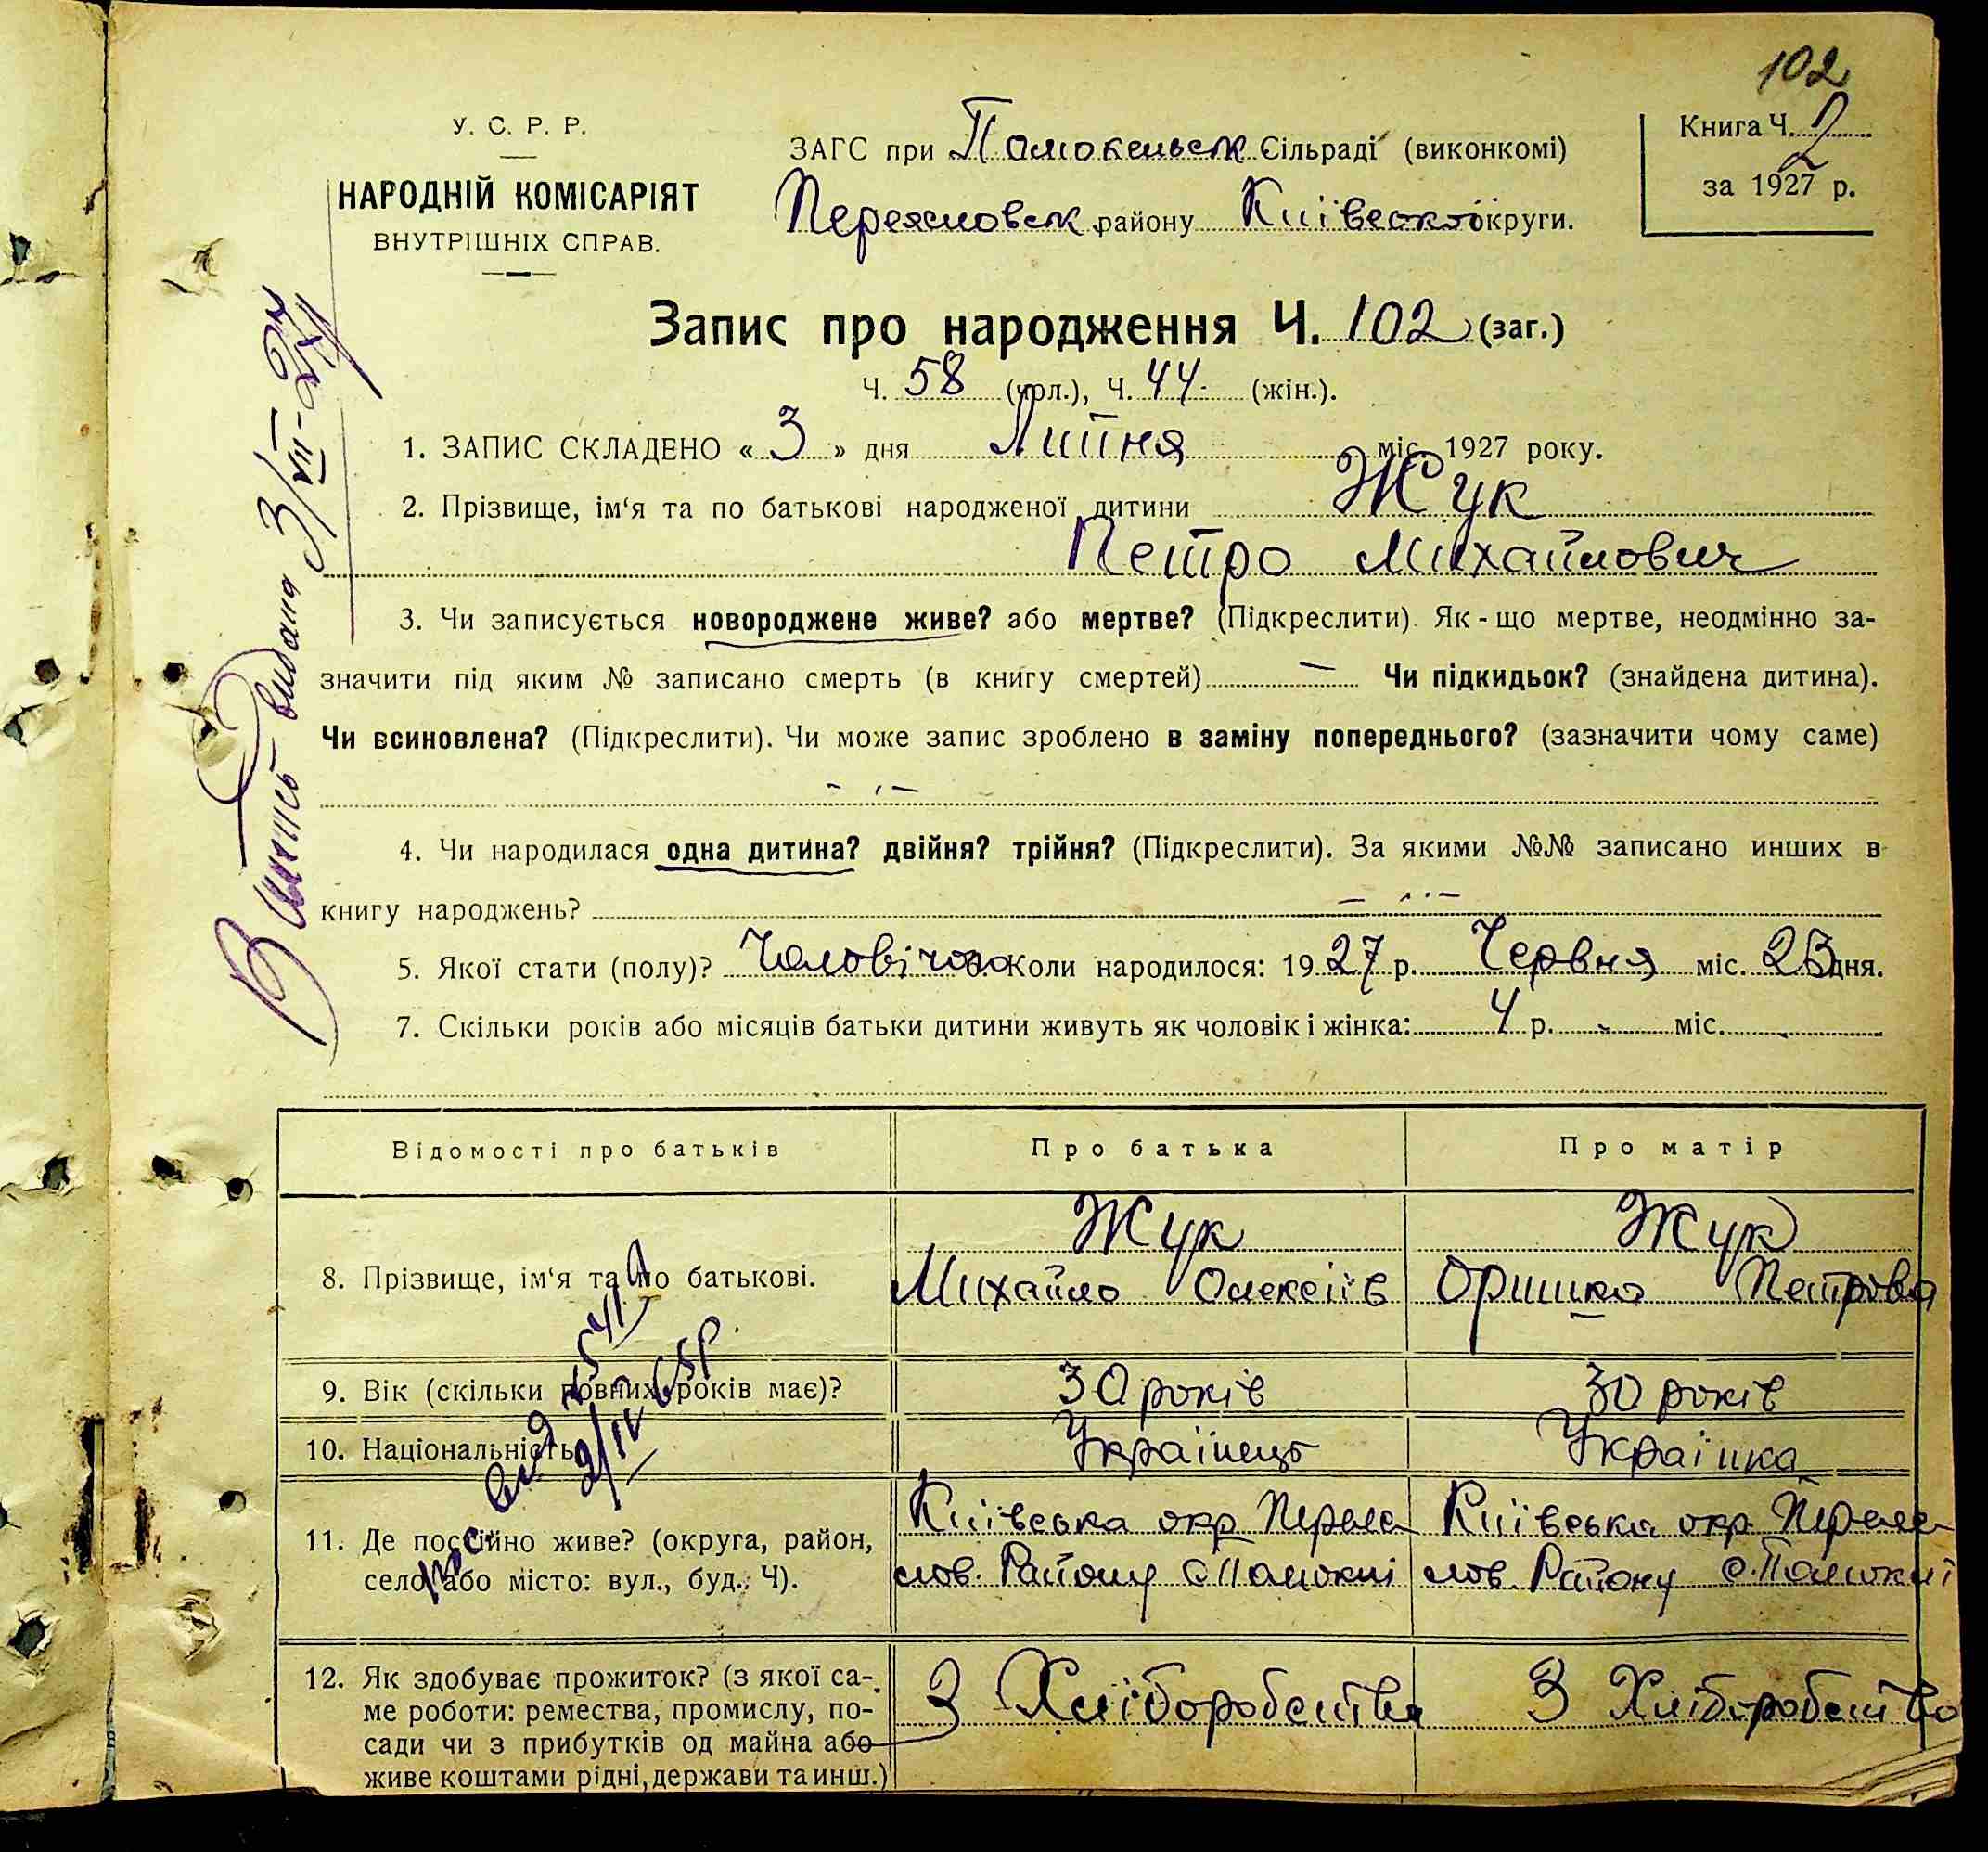 102
У. С. Р. Р.
НАРОДНІЙ КОМІСАРІЯТ
ВНУТРІШНІХ СПРАВ.
ЗАГС при Помокельск Сільраді (виконкомі)
Переясловск району Київської округи.
Книга Ч. 2
за 1927 р.
Запис про народження Ч. 102 (заг.)
Ч. 58 (чол.), Ч. 44 (жін.).
1. ЗАПИС СКЛАДЕНО « 3 » дня Липня міс. 1927 року.
2. Прізвище, ім‘я та по батькові народженої дитини Жук
Петро Михайлович
3. Чи записується новороджене живе? або мертве? (Підкреслити). Як-що мертве, неодмінно за-
значити під яким № записано смерть (в книгу смертей) — Чи підкидьок? (знайдена дитина).
Чи всиновлена? (Підкреслити). Чи може запис зроблено в заміну попереднього? (зазначити чому саме)
4. Чи народилася одна дитина? двійня? трійня? (Підкреслити). За якими №№ записано инших в
книгу народжень?
5. Якої стати (полу)? Чоловічого Коли народилося: 1927 р. Червня міс. 23 дня.
7. Скільки років або місяців батьки дитини живуть як чоловік і жінка: 4 р. - міс.
Витяг видана 3/VII-27
Відомості про батьків
Про батька
Про матір
8. Прізвище, ім‘я та по батькові.
Жук
Михайло Олексіїв
Жук
Оришка Петрова
9. Вік (скільки повних років має)?
30 років
30 років
10. Національність
Українець
Українка
11. Де постійно живе? (округа, район,
село або місто: вул., буд., Ч).
Київська окр Переяс
лов. Району с Помоклі
Київська окр Переяс
лов. Району с. Помоклі
12. Як здобуває прожиток? (з якої са-
ме роботи: ремества, промислу, по-
сади чи з прибутків од майна або
живе коштами рідні, держави та инш.)
З Хліборобства
З Хліборобства